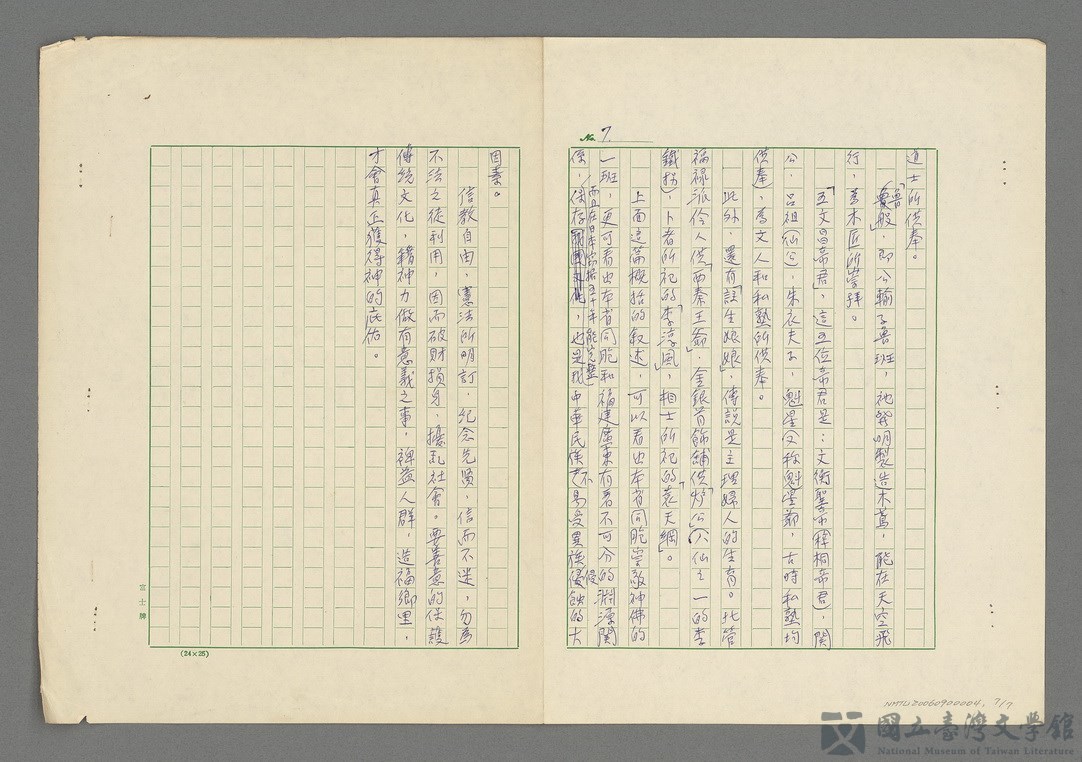 No. 7
道士所供奉。
「魯般」，即公輸子魯班，祂發明製造木鳶，能在天空飛
行，為木匠所崇拜。
「五文昌帝君」，這五位帝君是：文衡聖帝梓桐帝君），関
公、呂祖（仙公）、朱衣夫子、魁星（又称魁星爺，古時私塾均
供奉），為文人和私塾所供奉。
此外，還有「註生娘娘」，傳說是主理婦人的生育。北管
福祿派伶人供「西秦王爺」，金銀首飾舖供「炉公」（八仙之一的李
鐵拐），卜者所祀的「李淳風」，相士所祀的「袁天綱」。
上面這篇概括的敘述，可以看出本省同胞崇敬神佛的
一班，更可看出本省同胞和福建廣東有着不可分的淵源関
係，保存，也是我中華民族不易受異族侵蝕的大
而且在日本宰据五十年能完整
因素。
信教自由，憲法所明訂，紀念先賢，信而不迷，勿為
不法之徒利用，因而破財損身，擾乱社會。要善意的保護
傳統文化，籍神力做有意義之事，裨益人群，造福鄉里，
才會真正獲得神的庇佑。
(24×25)
士牌
NMTL20060900004, 7/7
國立臺灣文學館
National Museum of Taiwan Literature